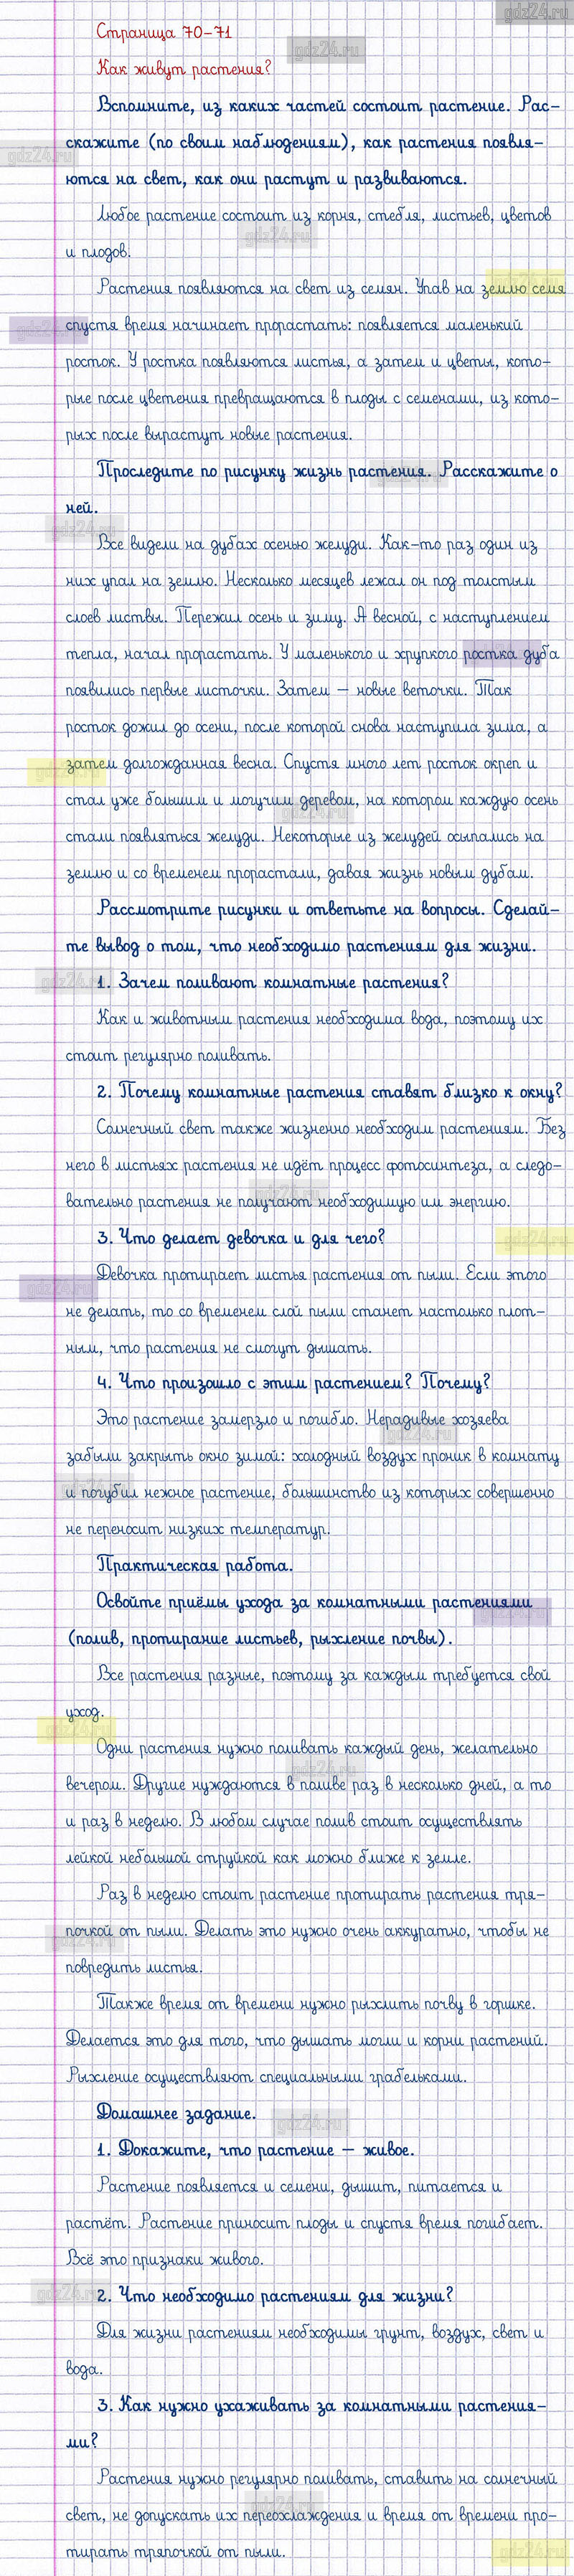 gdz24.ru
Страница 70-71
gdz24.ru
Как живут растения?
Вспомните, из каких частей состоит растение. Рас-
скажите (по своим наблюдениям), как растения появля-
gdz24.ru
ются на свет, как они растут и развиваются.
Любое растение состоит из корня, стебля, листьев, цветов
gdz24.ru
и плодов.
Растения появляются на свет из семян. Упав на землю семя
gdz24.ru
спустя время начинает прорастать: появляется маленький
gdz24.ru
росток. У ростка появляются листья, а затем и цветы, кото-
рые после цветения превращаются в плоды с семенами, из кото-
рых после вырастут новые растения.
Проследите по рисунку жизнь растения. Расскажите о
gdz24.ru
ней.
gdz24.ru
Все видели на дубах осенью желуди. Как-то раз один из
них упал на землю. Несколько месяцев лежал он под толстым
слоев листвы. Пережил осень и зиму. А весной, с наступлением
тепла, начал прорастать. У маленького и хрупкого ростка дуба
появились первые листочки. Затем – новые веточки. Так
росток дожил до осени, после которой снова наступила зима, а
затем долгожданная весна. Спустя много лет росток окреп и
gdz24.ru
стал уже большим и могучим деревом, на котором каждую осень
gdz24.ru
стали появляться желуди. Некоторые из желудей осыпались на
землю и со временем прорастали, давая жизнь новым дубам.
Рассмотрите рисунки и ответьте на вопросы. Сделай-
те вывод о том, что необходимо растениям для жизни.
1. Зачем поливают комнатные растения?
gdz24.ru
Как и животным растения необходима вода, поэтому их
стоит регулярно поливать.
2. Почему комнатные растения ставят близко к окну?
Солнечный свет также жизненно необходим растениям. Без
него в листьях растения не идёт процесс фотосинтеза, а следо-
gdz24.ru
вательно растения не получают необходимую им энергию.
3. Что делает девочка и для чего?
gdz24.ru
Девочка протирает листья растения от пыли. Если этого
gdz24.ru
не делать, то со временем слой пыли станет настолько плот-
ным, что растения не смогут дышать.
4. Что произошло с этим растением? Почему?
Это растение замерзло и погибло. Нерадивые хозяева
gdz24.ru
забыли закрыть окно зимой: холодный воздух проник в комнату
gdz24.ru
и погубил нежное растение, большинство из которых совершенно
не переносит низких температур.
Практическая работа.
Освойте приёмы ухода за комнатными растениями
gdz24.ru
(полив, протирание листьев, рыхление почвы).
Все растения разные, поэтому за каждым требуется свой
уход.
gdz24.ru
Одни растения нужно поливать каждый день, желательно
gdz24.ru
вечером. Другие нуждаются в поливе раз в несколько дней, а то
и раз в неделю. В любом случае полив стоит осуществлять
лейкой небольшой струйкой как можно ближе к земле.
Раз в неделю стоит растение протирать растения тря-
почкой от пыли. Делать это нужно очень аккуратно, чтобы не
gdz24.ru
повредить листья.
Также время от времени нужно рыхлить почву в горшке.
Делается это для того, что дышать могли и корни растений.
Рыхление осуществляют специальными грабельками.
Домашнее задание.
gdz24.ru
1. Докажите, что растение – живое.
Растение появляется и семени, дышит, питается и
растёт. Растение приносит плоды и спустя время погибает.
Всё это признаки живого.
gdz24.ru
2. Что необходимо растениям для жизни?
Для жизни растениям необходимы грунт, воздух, свет и
вода.
3. Как нужно ухаживать за комнатными растения-
ми?
Растения нужно регулярно поливать, ставить на солнечный
gdz24.ru
свет, не допускать их переохлаждения и время от времени про-
тирать тряпочкой от пыли.
gdz24.ru